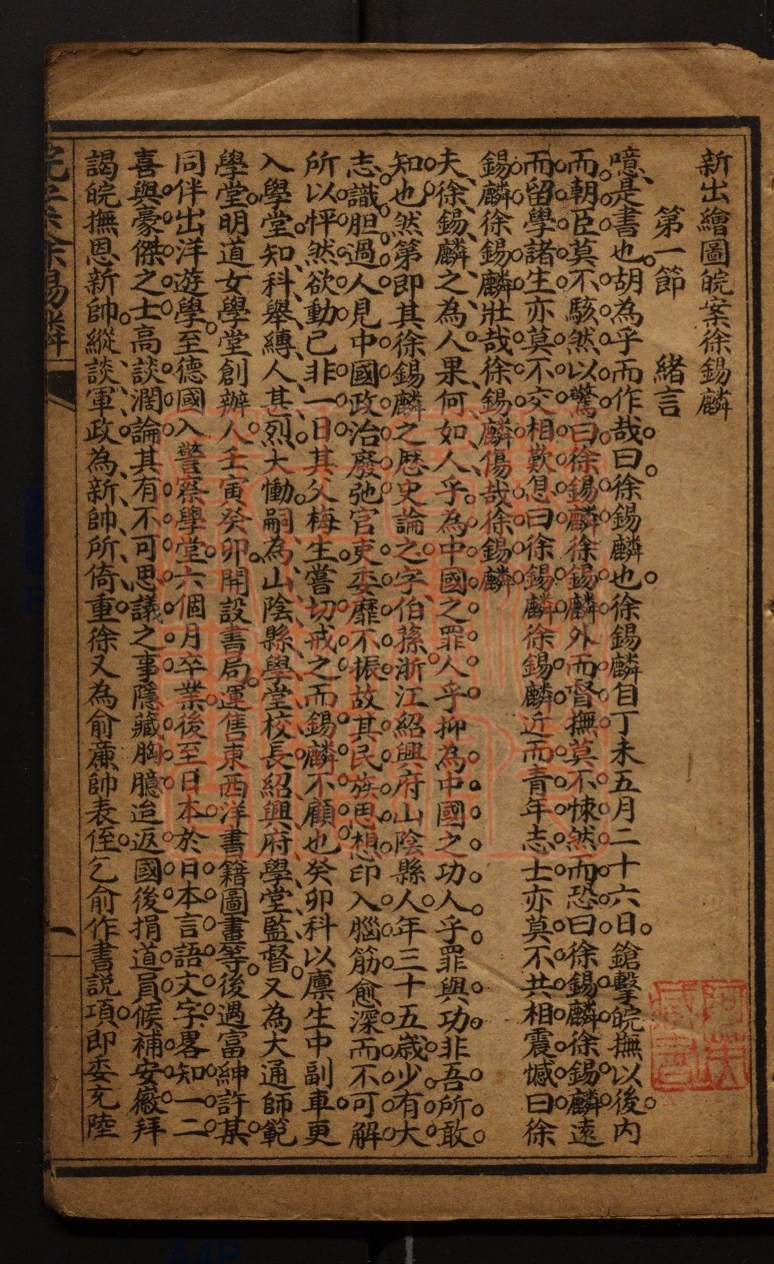 新出繪圖皖案徐錫麟
第一節　緒言
噫是書也胡為乎而作哉曰徐錫麟也徐錫麟自丁未五月二十六日鎗擊皖撫以後内
而朝臣莫不駭然以驚曰徐錫麟徐錫麟外而督撫莫不悚然而恐曰徐錫麟徐錫麟遠
而留學諸生亦莫不交相歎息曰徐錫麟徐錫麟近而青年志士亦莫不共相震憾曰徐
錫麟徐錫麟壯哉徐錫麟傷哉徐錫麟
夫徐錫麟之為人果何如人乎為中國之罪人乎抑為中國之功人乎罪與功非吾所敢
知也然第即其徐錫麟之歷史論之字伯蓀浙江紹興府山陰縣人年三十五歲少有大
志識胆過人見中國政治廢弛官吏委靡不振故其民族思想印入腦筋愈深而不可解
所以怦然欲動已非一日其父梅生嘗切戒之而錫麟不顧也癸卯科以廩生中副車更
入學堂知科舉縛人甚烈大慟嗣為山陰縣學堂校長紹興府學堂監督又為大通師範
學堂明道女學堂創辦人壬寅癸卯開設書局運售東西洋書籍圖書等後遇富紳許某
同伴出洋遊學至德國入警察學堂六個月卒業後至日本於日本言語文字畧知一二
喜與豪傑之士高談濶論其有不可思議之事隱藏胸臆迨返國後捐道員候補安薇拜
謁皖撫恩新帥縱談軍政為新帥所倚重徐又為俞亷帥表侄乞俞作書説項即委充陸
皖案徐錫麟
一